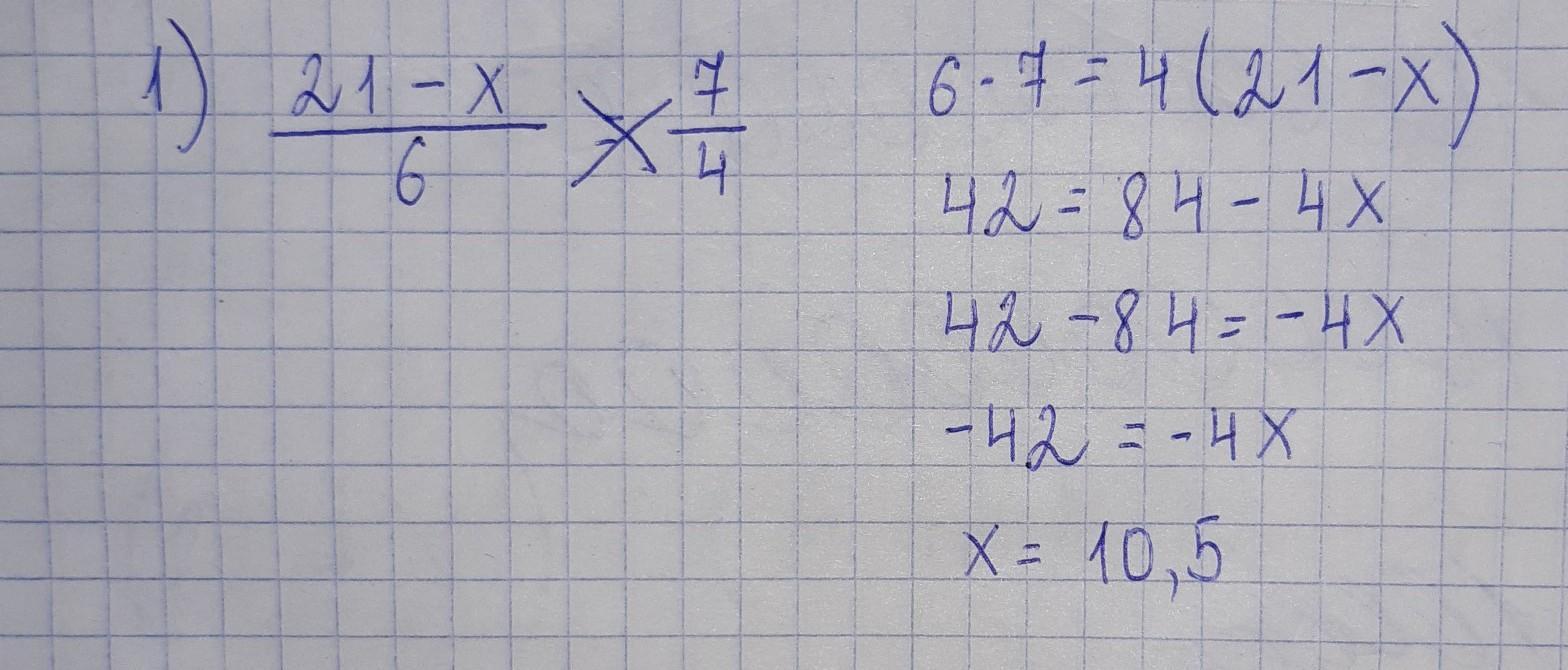 1) (21 - x)/6 = 7/4
6 · 7 = 4(21 - x)
42 = 84 - 4x
42 - 84 = -4x
-42 = -4x
x = 10,5